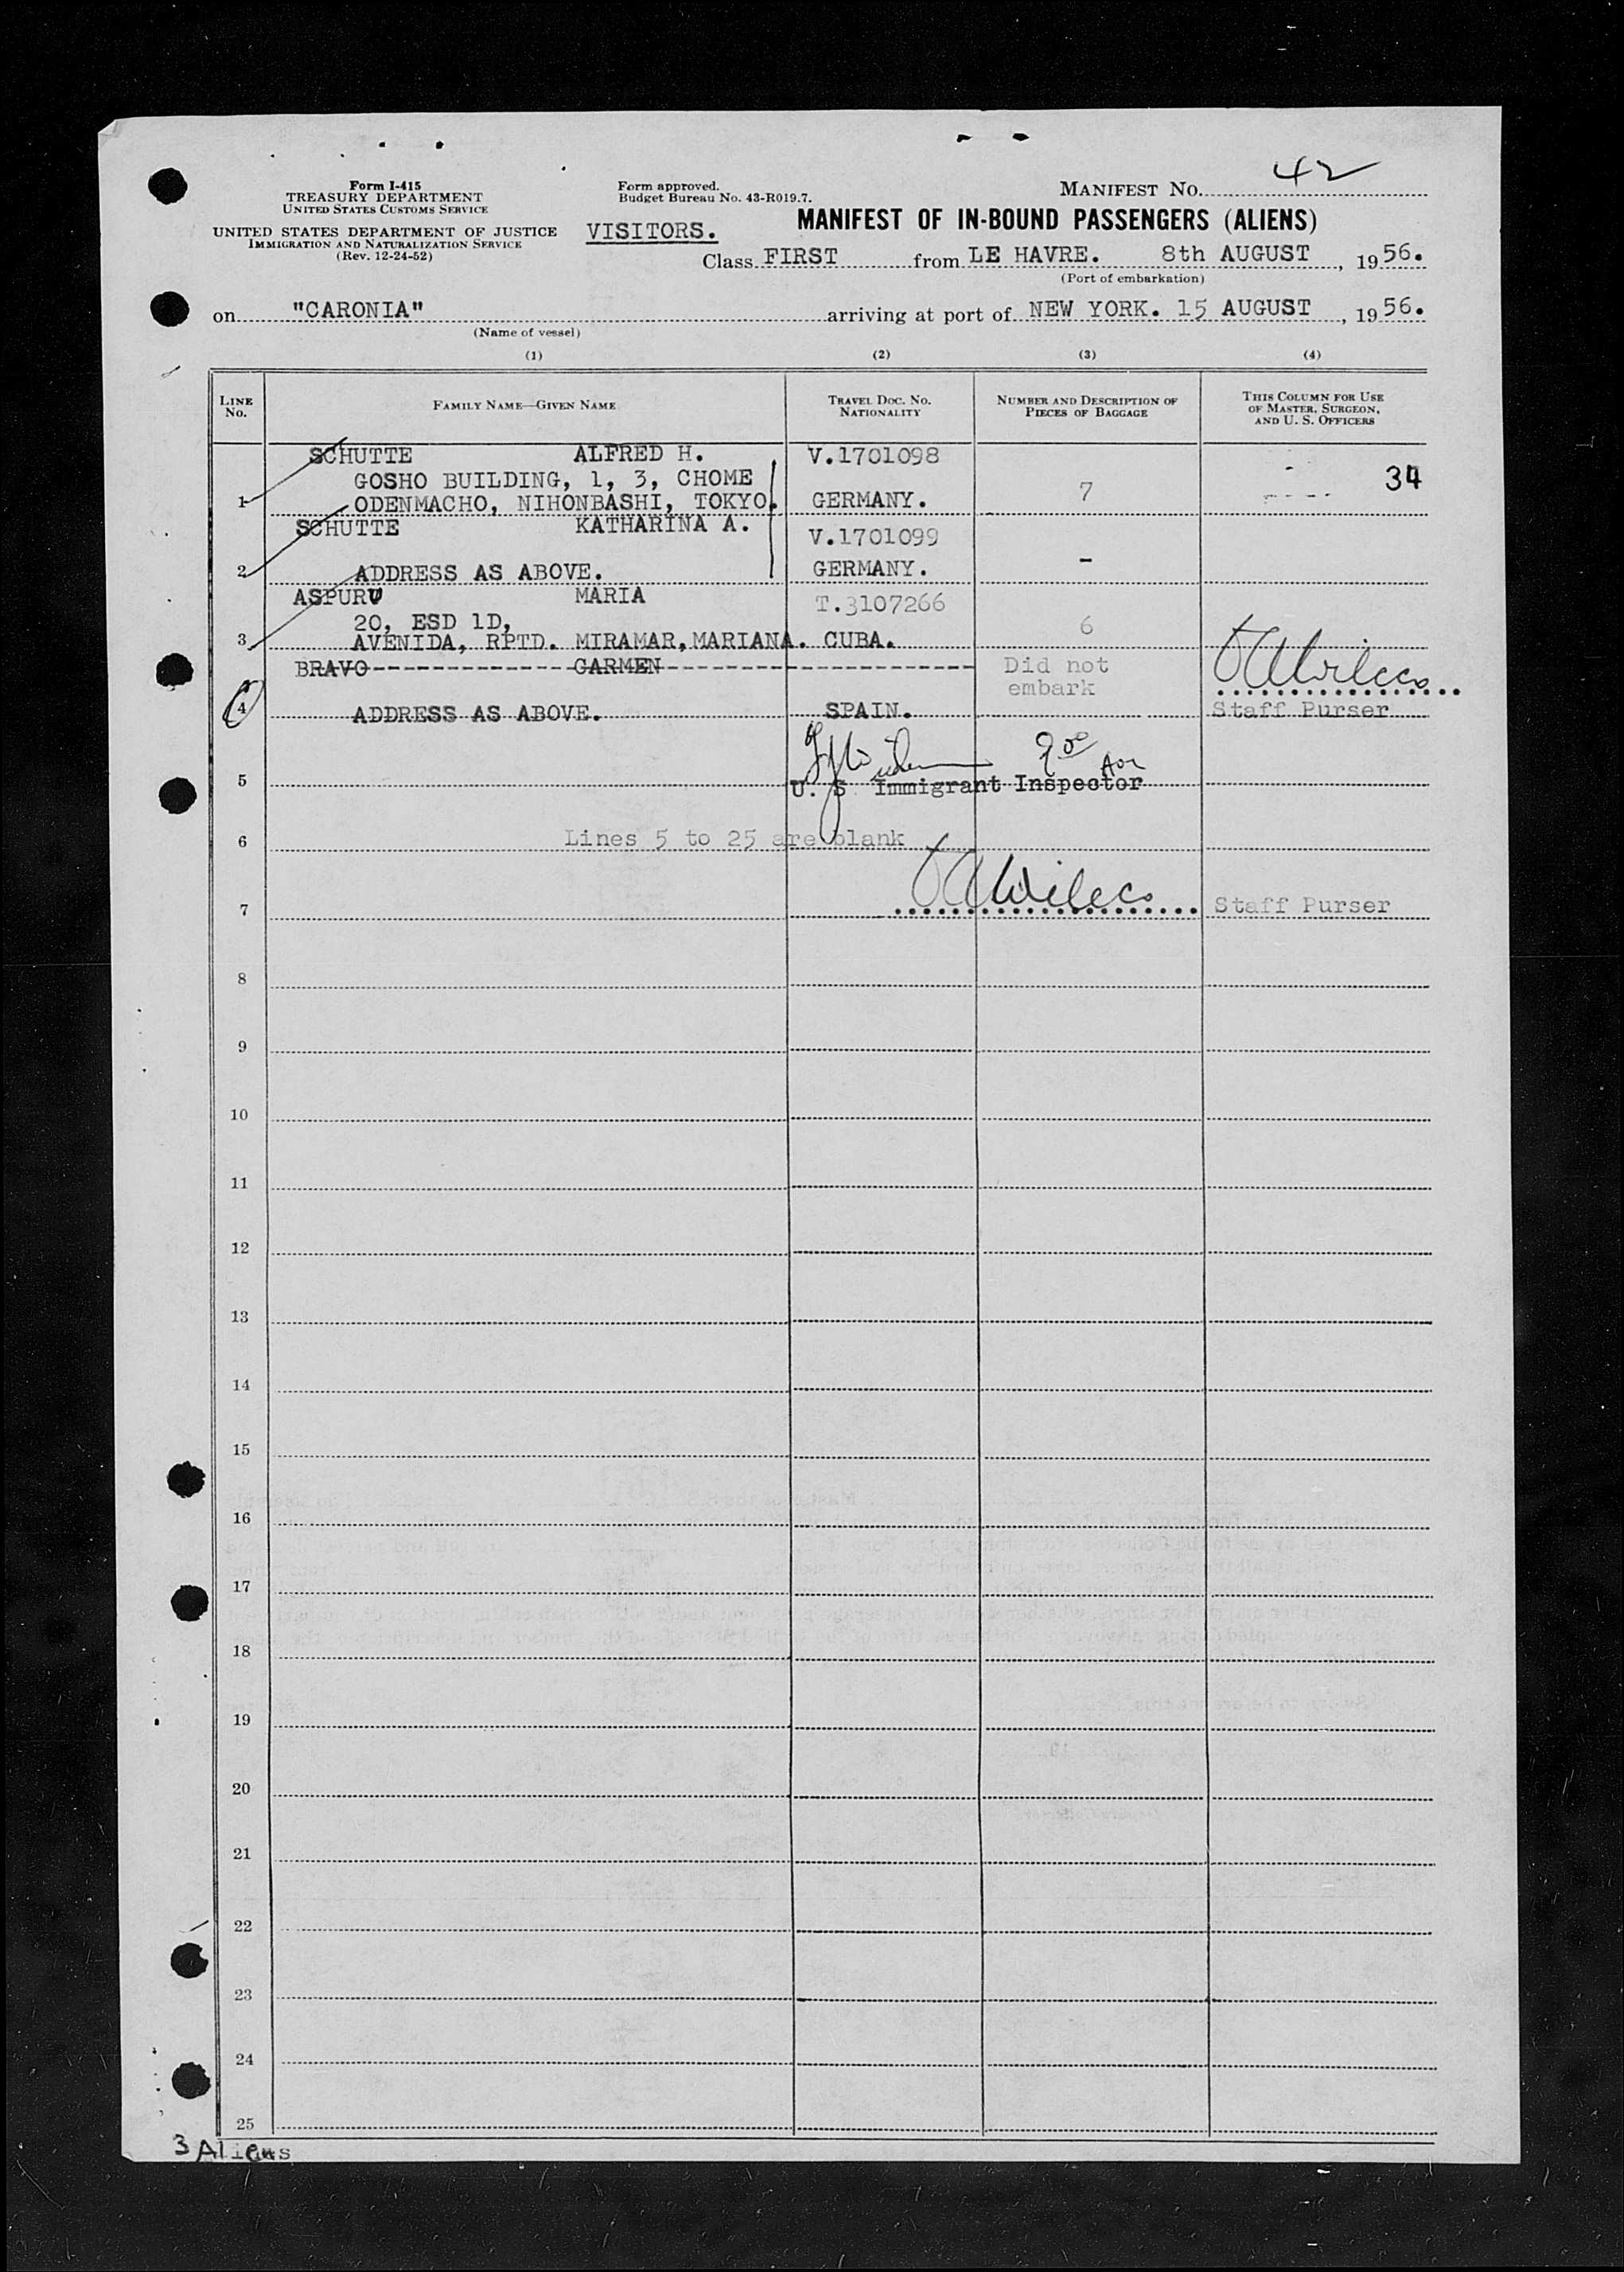 Form I-415
TREASURY DEPARTMENT
UNITED STATES CUSTOMS SERVICE
UNITED STATES DEPARTMENT OF JUSTICE
IMMIGRATION AND NATURALIZATION SERVICE
(Rev. 12-24-52)
Form approved.
Budget Bureau No. 43-R019.7.
VISITORS.
MANIFEST NO. 42
MANIFEST OF IN-BOUND PASSENGERS (ALIENS)
Class FIRST from LE HAVRE. 8th AUGUST, 1956.
(Port of embarkation)
on "CARONIA" arriving at port of NEW YORK. 15 AUGUST, 1956.
(Name of vessel)
(1) (2) (3) (4)
LINE NO. FAMILY NAME—GIVEN NAME TRAVEL DOC. NO. NATIONALITY NUMBER AND DESCRIPTION OF PIECES OF BAGGAGE THIS COLUMN FOR USE OF MASTER, SURGEON, AND U. S. OFFICERS
SCHUTTE ALFRED H. V.1701098
GOSHO BUILDING, 1, 3, CHOME 34
1 ODENMACHO, NIHONBASHI, TOKYO. GERMANY. 7
SCHUTTE KATHARINA A. V.1701099
2 ADDRESS AS ABOVE. GERMANY. -
ASPURU MARIA T.3107266
20, ESD 1D,
3 AVENIDA, RPTD. MIRAMAR, MARIANA. CUBA. 6
BRAVO CARMEN Did not
embark
4 ADDRESS AS ABOVE. SPAIN. Staff Purser
9 00 Am
5 U. S. Immigrant Inspector
6 Lines 5 to 25 are blank
7 Staff Purser
8
9
10
11
12
13
14
15
16
17
18
19
20
21
22
23
24
25
3 Aliens